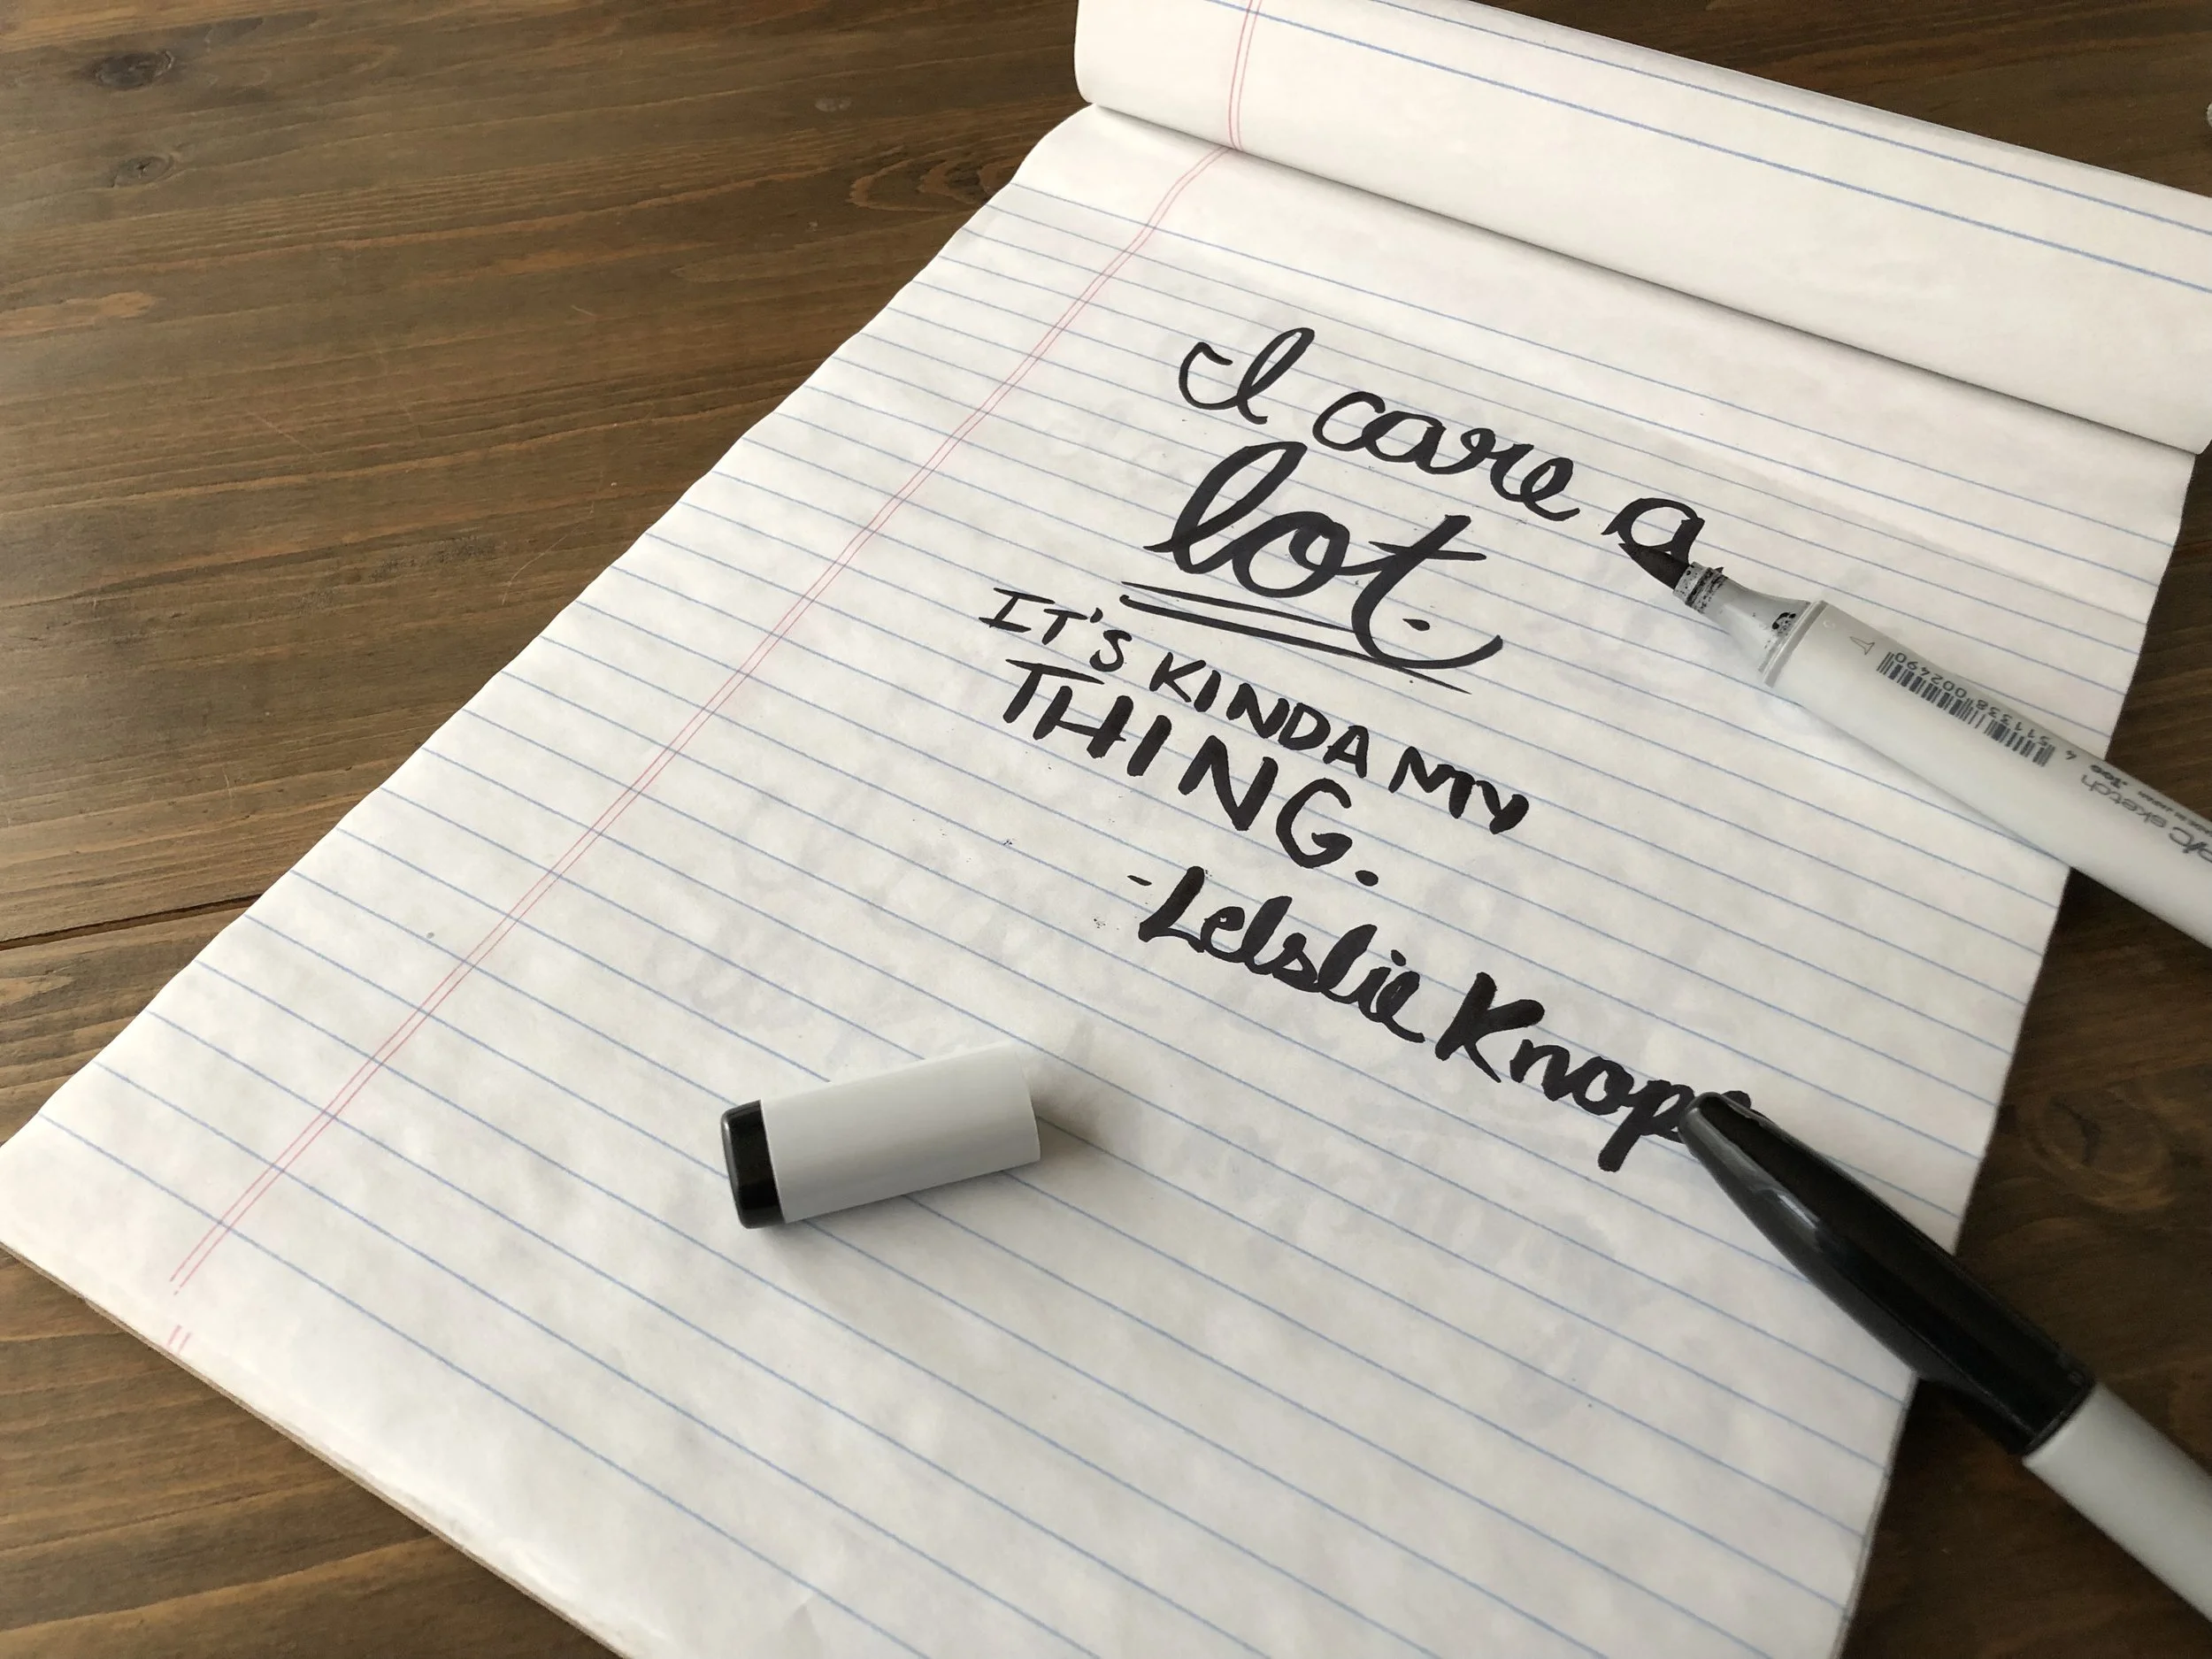 I care a
lot.
IT'S KINDA MY
THING.
-Lelslie Knop
4 511338 002490
sketch